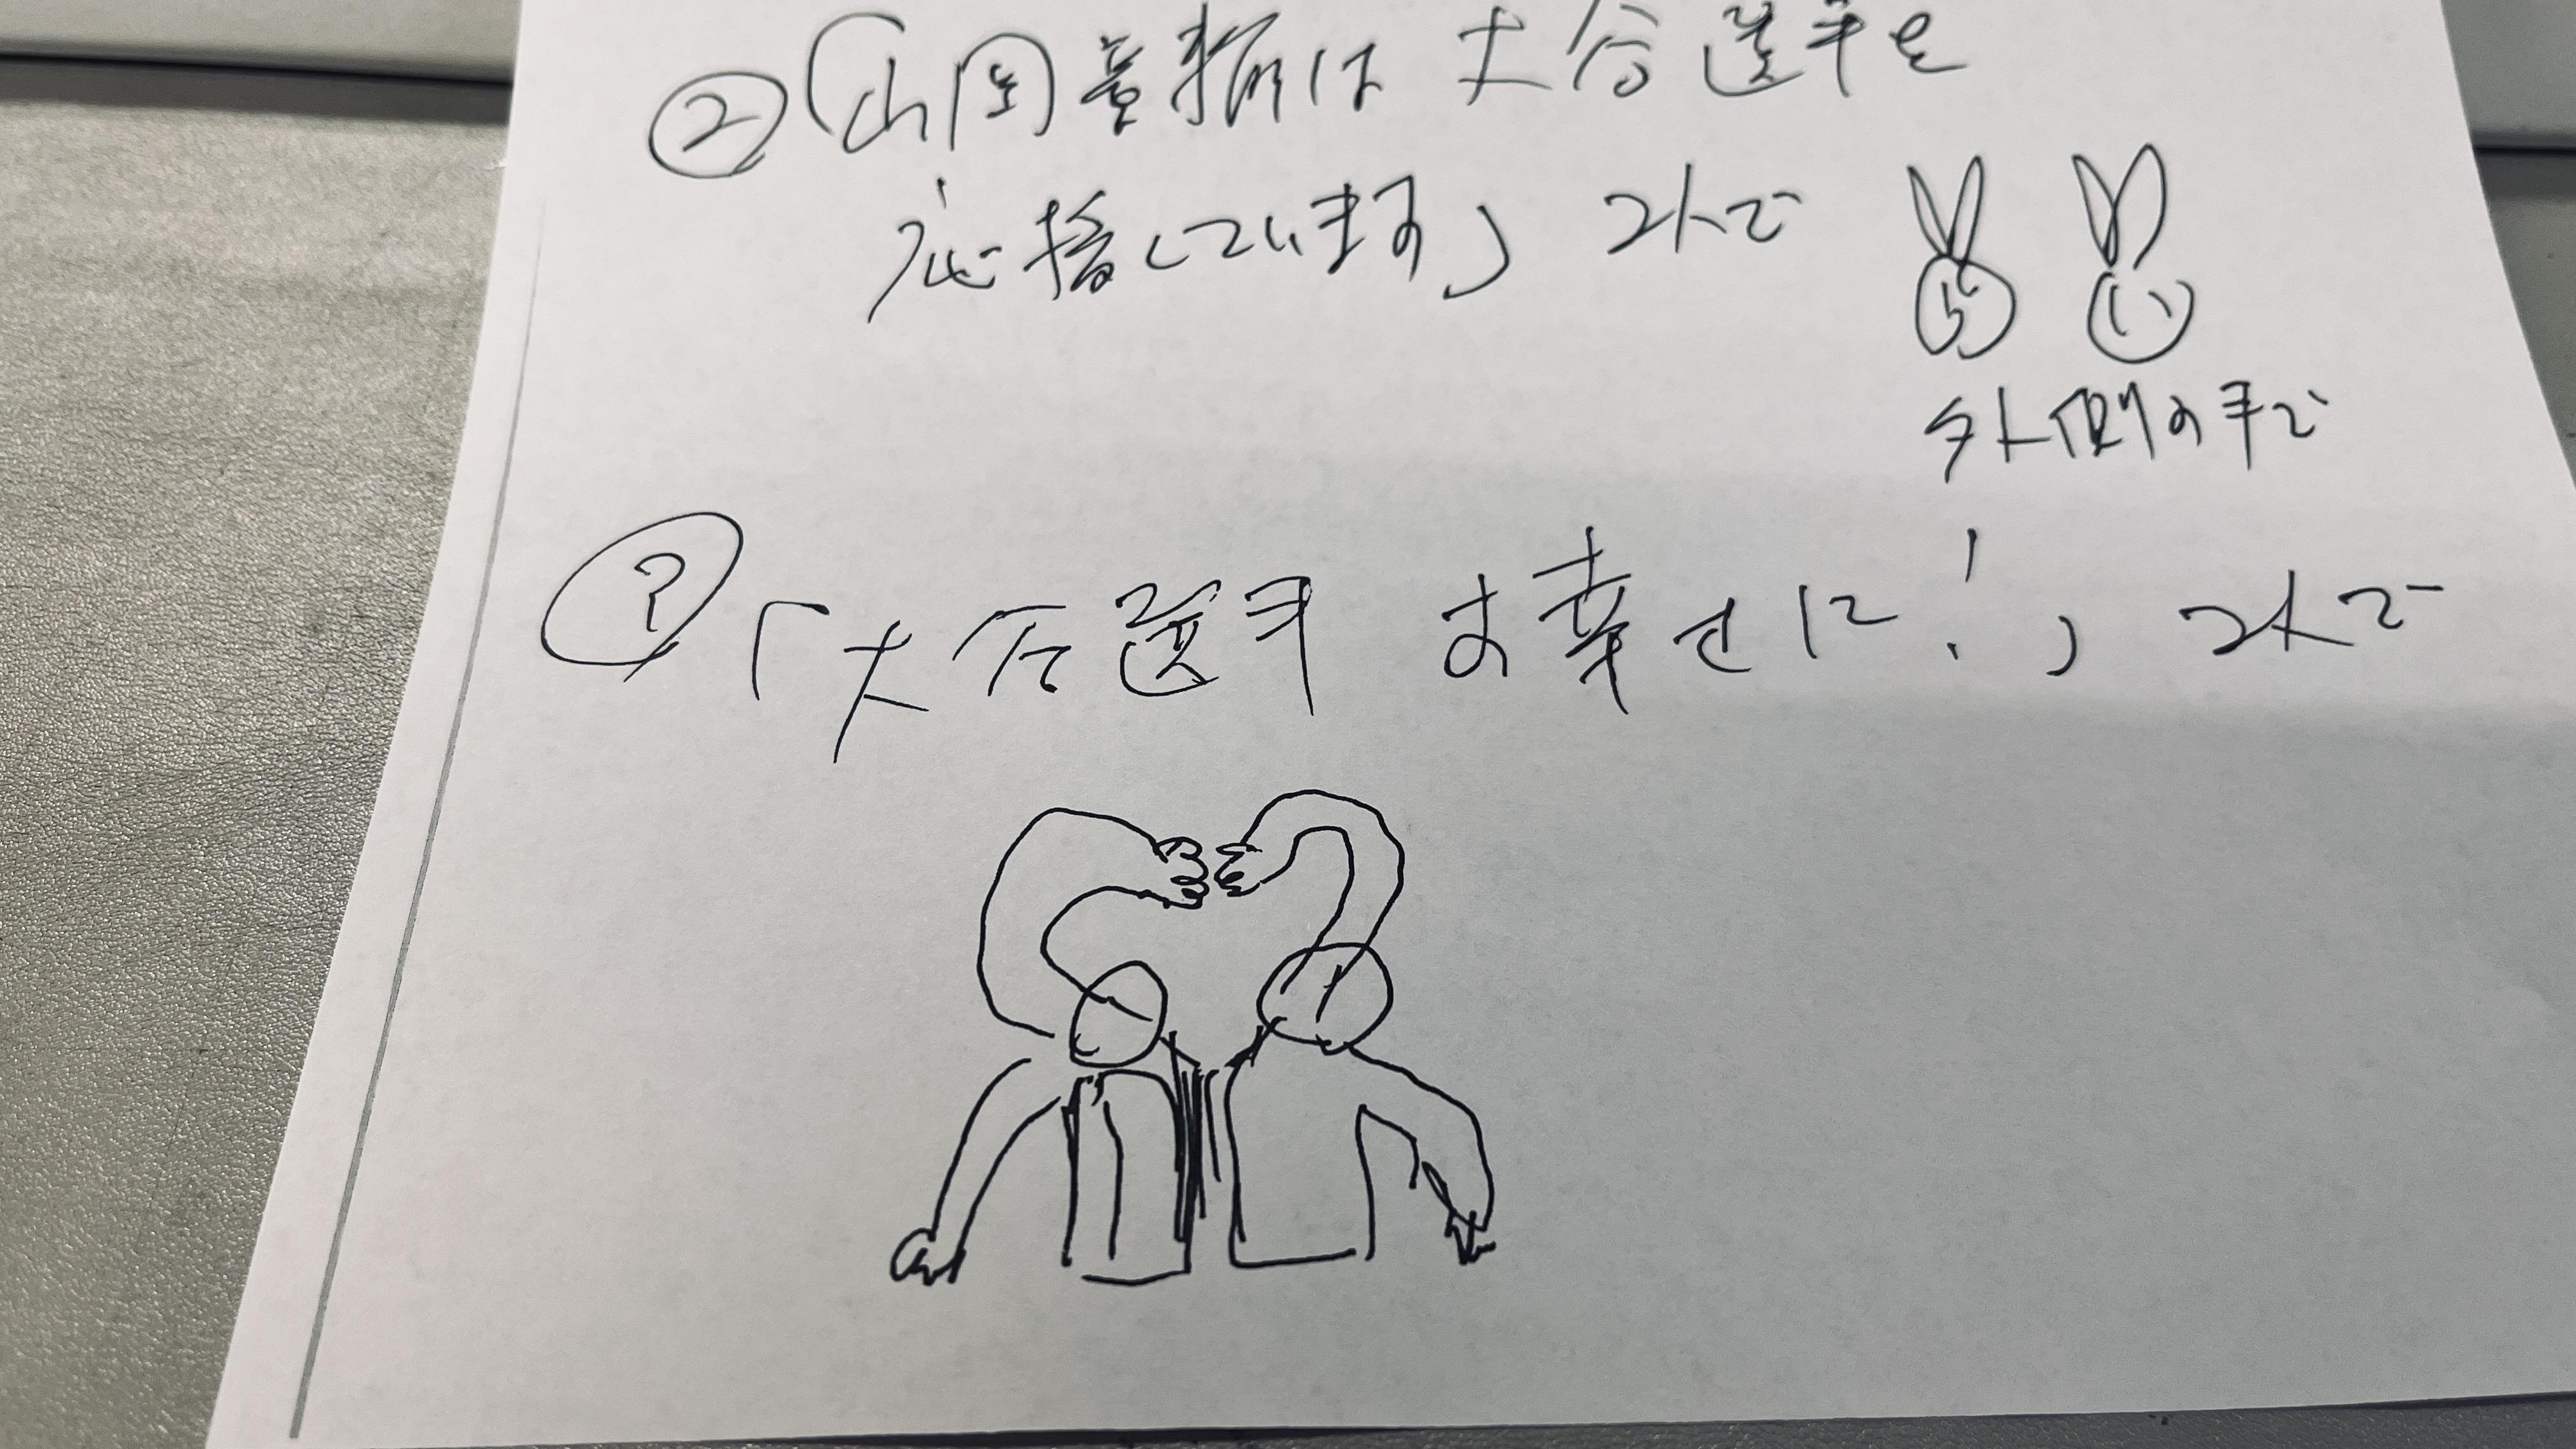 ②「山岡章栃は 大谷選手を
応援しています」 2人で
外側の手で
?「大谷選手 お幸せに!」 2人で